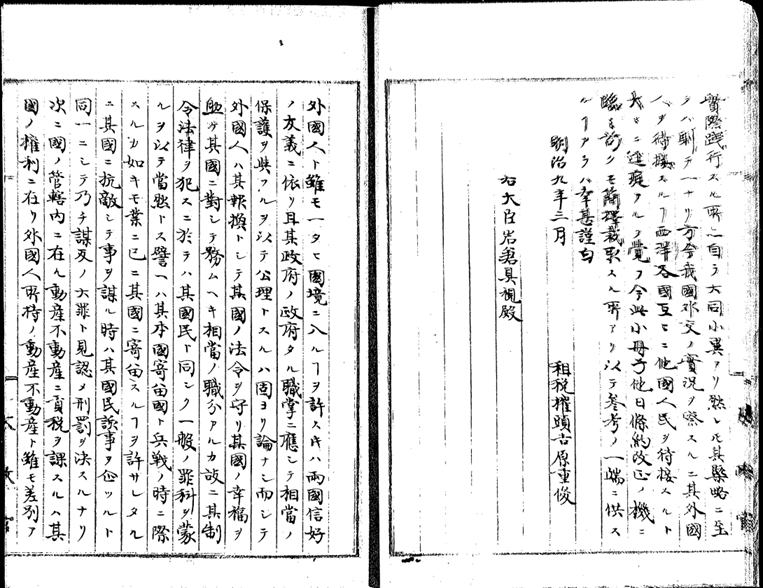 實際踐行スル所ニ自ラ大同小異アリ然レ𪜈其槩略ニ至
テハ則チ一ナリ方今我國外交ノ實況ヲ察スルニ其外國
人ヲ待接スルヿ西洋各國互ニ他國人民ヲ待接スルト
大ニ逕庭アルヲ覺フ今此小冊子他日條約改正ノ機ニ
臨ミ若クモ簡擇裁取スル所アリ以テ参考ノ一端ニ供ス
ルヿアラハ幸甚謹白
明治九年三月
租税權頭吉原重俊
右大臣岩倉具視殿
外國人ト雖モ一タヒ國境ニ入ルヿヲ許ス片ハ兩國信好
ノ友義ニ依リ且其政府ノ政府タル職掌ニ應シテ相當ノ
保護ヲ與フルヲ以テ公理トスルハ固ヨリ論ナシ而シテ
外國人ハ其報換トシテ其國ノ法令ヲ守リ其國ノ幸福ヲ
助ケ其國ニ對シテ務ムヘキ相當ノ職分アルカ故ニ其制
令法律ヲ犯スニ於テハ其國民ト同シク一般ノ罪科ヲ蒙
ルヲ以テ當然トス譬ヘハ其本國寄留國ト兵戦ノ時ニ際
スルカ如キモ業ニ已ニ其國ニ寄留スルヿヲ許サレタル
ニ其國ニ抗敵シテ事ヲ謀ル時ハ其國民該事ヲ企ツルト
同一ニシテ乃チ謀反ノ大罪ト見認メ刑罰ヲ決スルナリ
次ニ國ノ管轄内ニ在ル動産不動産ニ貢税ヲ課スルハ其
國ノ權利ニ在リ外國人所持ノ動産不動産ト雖モ差別ア
太政官